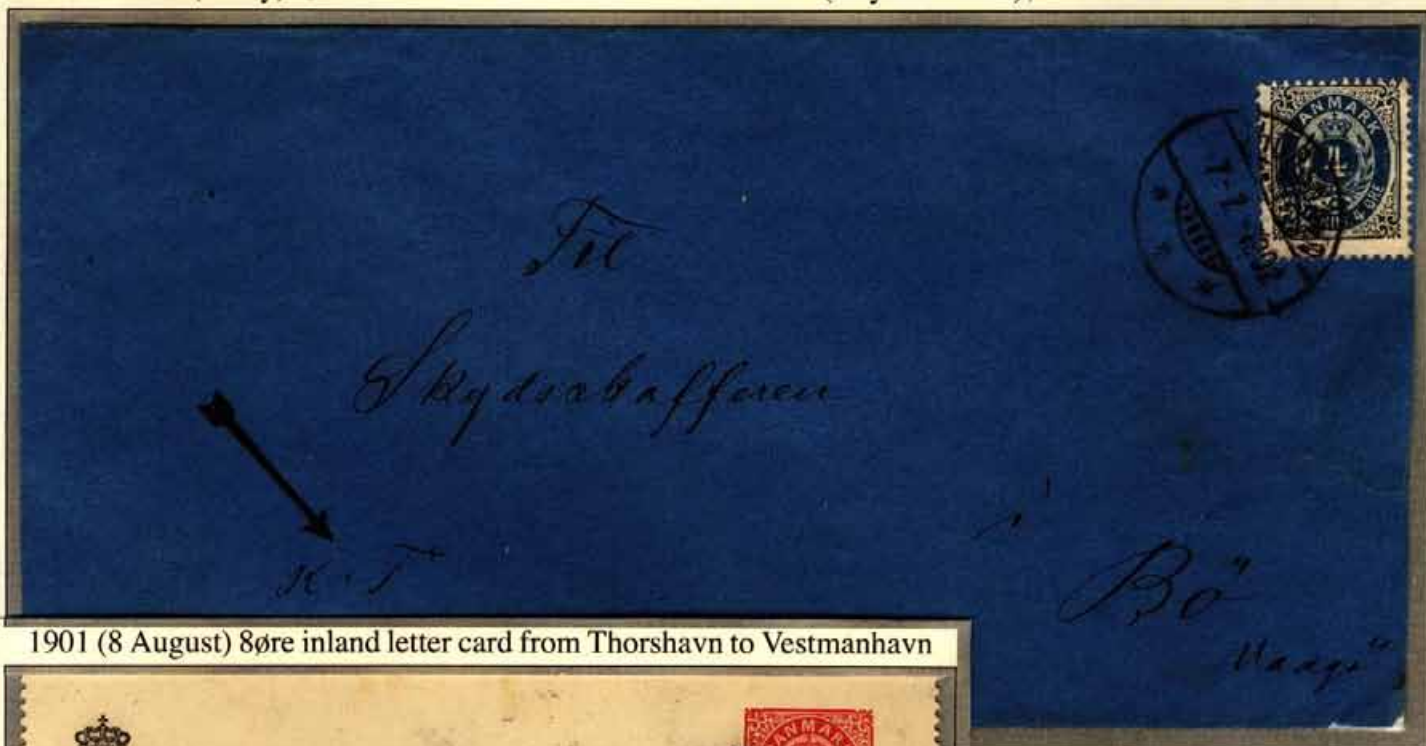 DANMARK
4
4 ØRE
Til
Skydsskafferen
i
Bö
Vaagö
K. T
1901 (8 August) 8øre inland letter card from Thorshavn to Vestmanhavn
DANMARK